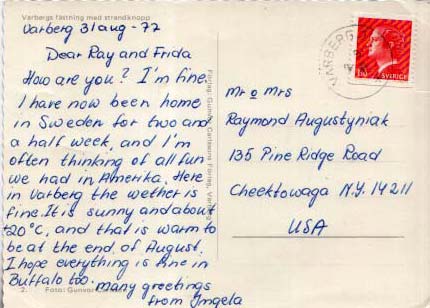 Varbergs fästning med strandknopp
Varberg 31 aug - 77
Dear Ray and Frida
How are you? I'm fine.
I have now been home
in Sweden for two and
a half week, and I'm
often thinking of all fun
we had in Amerika. Here
in Varberg the wether is
fine. It is sunny and about
+20°C, and that is warm to
be at the end of August.
I hope everything is fine in
Buffalo too. many greetings
from Ingela
2. Foto: Gunvor
VARBERG
SVERIGE
Mr o Mrs
Raymond Augustyniak
135 Pine Ridge Road
Cheektowaga N.Y. 14211
USA